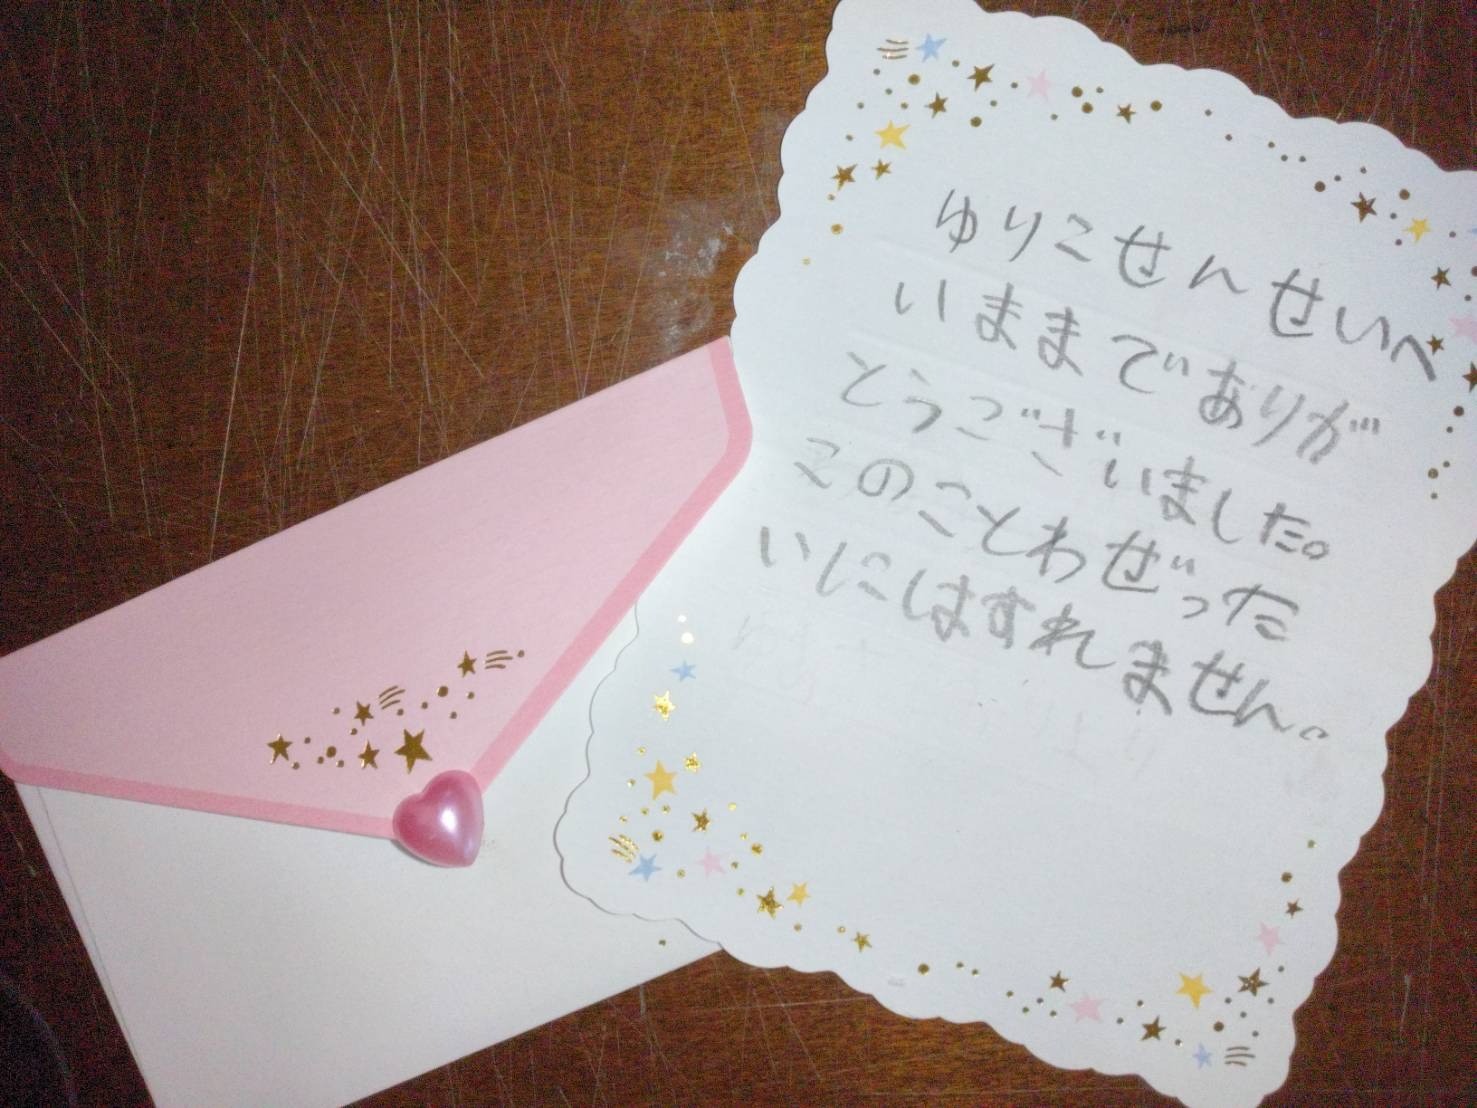 ゆりこせんせいへ
いままでありが
とうございました。
このことわぜった
いにはすれません。